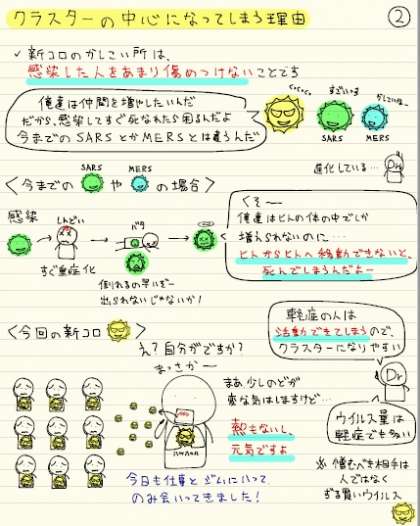 クラスターの中心になってしまう理由 ②
✓ 新コロのかしこい所は、
感染した人をあまり傷めつけないことです
俺達は仲間を増やしたいんだ
だから、感染してすぐ死なれたら困るんだよ
今までのSARSとかMERSとは違うんだぜ
すごいっス
SARS
MERS
進化している…
Dr
<今までの SARS や MERS の場合>
感染
しんどい
すぐ重症化
バタ
倒れるの早いぜー
出られないじゃないか!
くそー
俺達はヒトの体の中でしか
増えられないのに…
ヒトからヒトへ移動できないと、
死んでしまうんだよー
<今回の新コロ >
え?自分がですか?
まっさかー
まあ少しのどが
変な気はしますけど…
熱もないし、
元気ですよ
今日も仕事とジムに行って
のみ会いってきました!
軽症の人は
活動できてしまうので、
クラスターになりやすい
Dr
ウイルス量は
軽症でも多い
※ 憎むべき相手は
人ではなく
ずる賢いウイルス